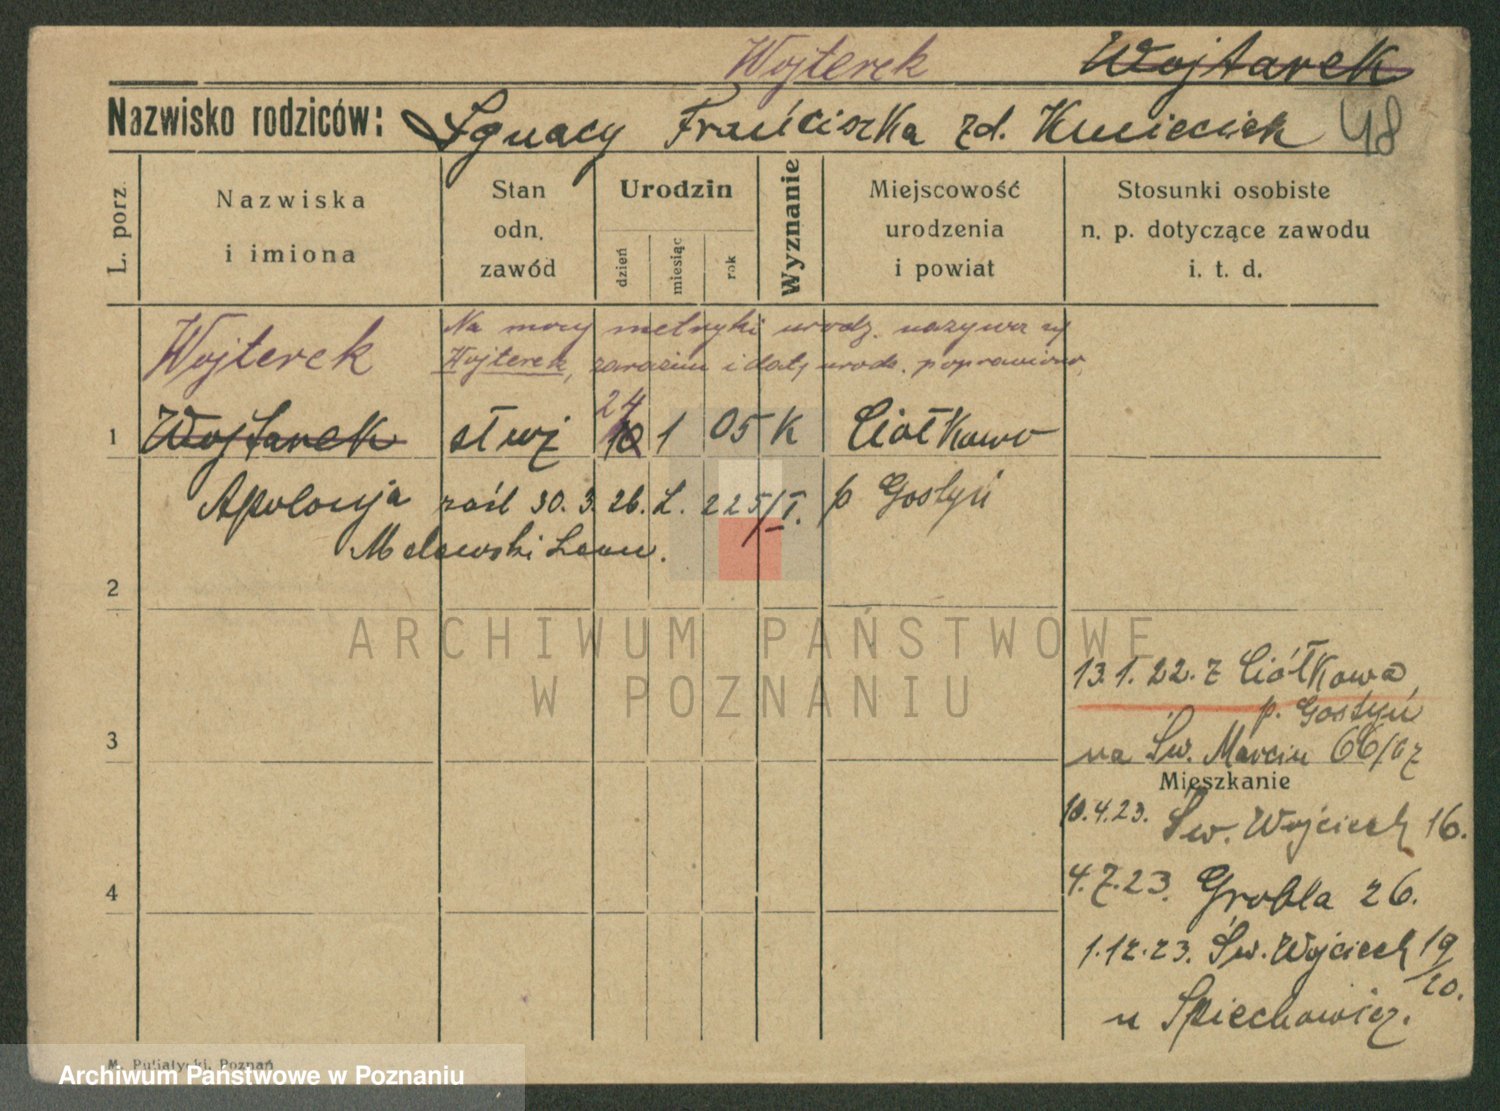 Wojterek Wojtarek
Nazwisko rodziców: Ignacy Franciszka zd. Kmieciek 48
L. porz.
Nazwiska
i imiona
Stan
odn.
zawód
Urodzin
dzień
miesiąc
rok
Wyznanie
Miejscowość
urodzenia
i powiat
Stosunki osobiste
n. p. dotyczące zawodu
i. t. d.
Wojterek
Na mocy metryki urodz. nazywa się
Wojterek, zarazem i datę urodz. poprawiono
24
1 Wojtarek służ 10 1 05 K Ciółkowo
Apolonja zaśl 30. 3. 26. L. 225/I. p Gostyń
Melewski Leon.
2
ARCHIWUM PAŃSTWOWE
W POZNANIU
13.1.22. z Ciółkowa
p. Gostyń
3
na Św. Marcin 66/67
Mieszkanie
10.4.23. Św. Wojciech 16.
4
4.7.23. Grobla 26.
1.12.23. Św. Wojciech 19/20.
u Spiechowicz.
M. Putiatycki, Poznań
Archiwum Państwowe w Poznaniu